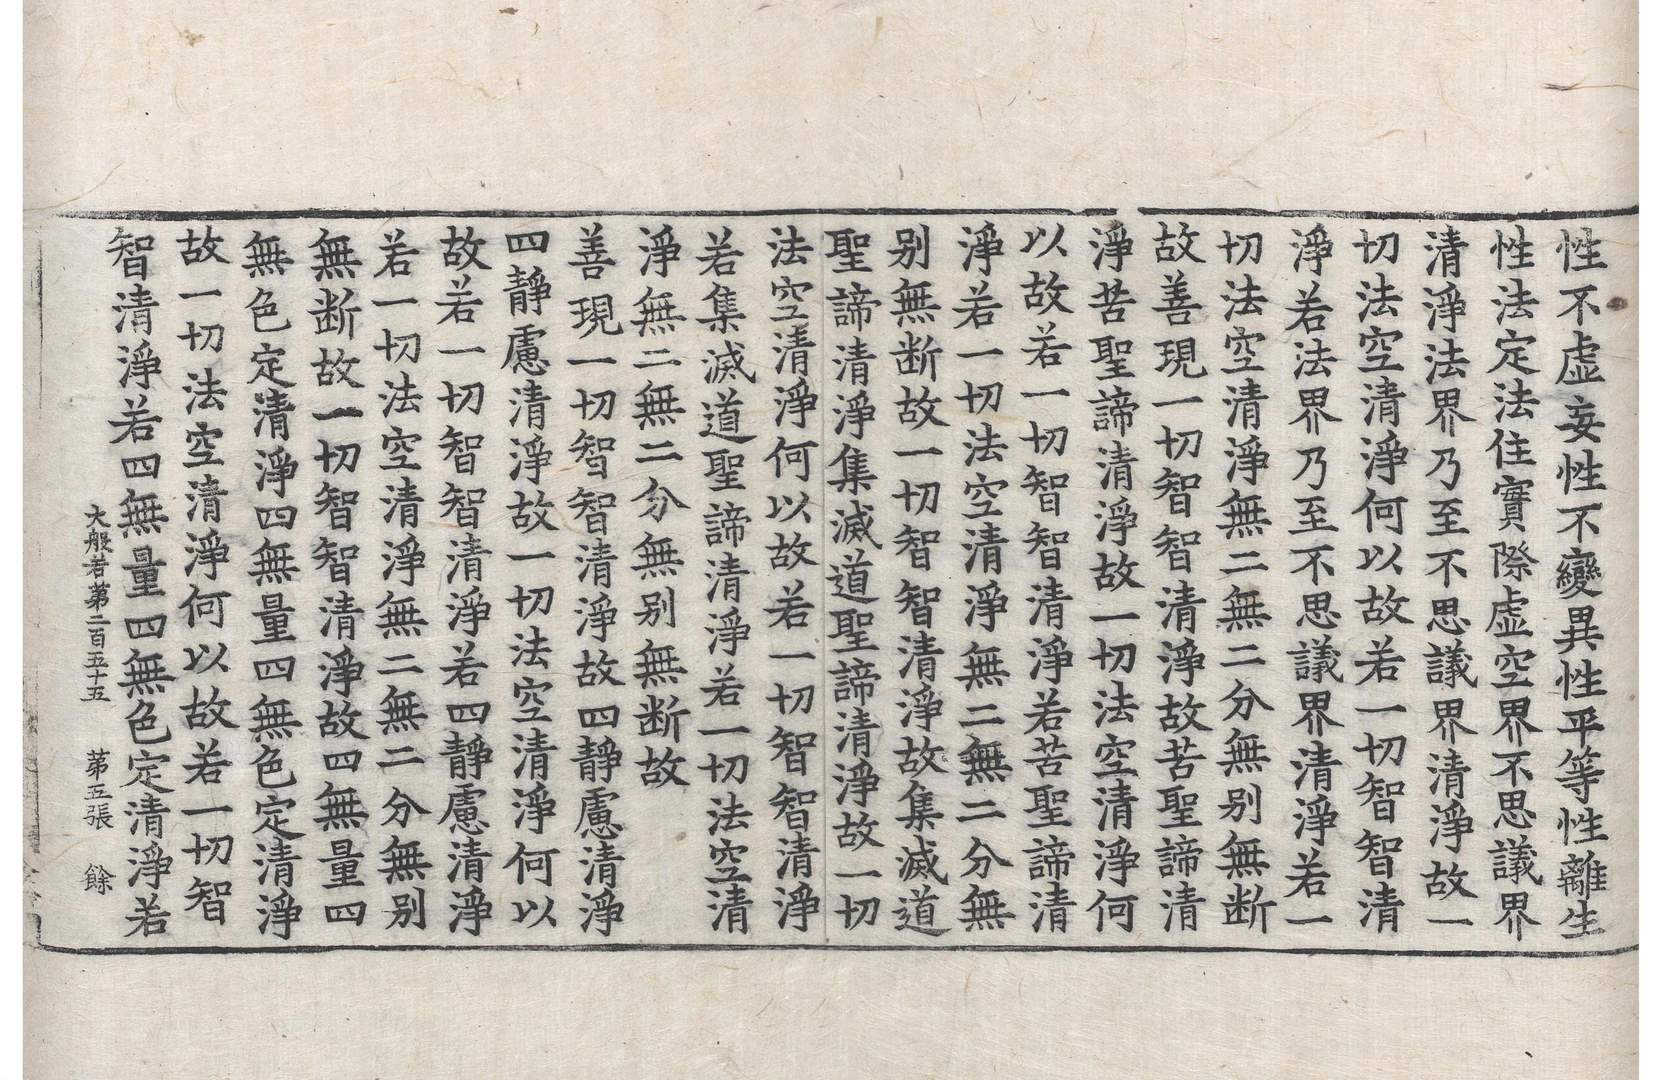 性不虚妄性不變異性平等性離生
性法定法住實際虚空界不思議界
清淨法界乃至不思議界清淨故一
切法空清淨何以故若一切智智清
淨若法界乃至不思議界清淨若一
切法空清淨無二無二分無别無断
故善現一切智智清淨故苦聖諦清
淨苦聖諦清淨故一切法空清淨何
以故若一切智智清淨若苦聖諦清
淨若一切法空清淨無二無二分無
别無断故一切智智清淨故集滅道
聖諦清淨集滅道聖諦清淨故一切
法空清淨何以故若一切智智清淨
若集滅道聖諦清淨若一切法空清
淨無二無二分無别無断故
善現一切智智清淨故四靜慮清淨
四靜慮清淨故一切法空清淨何以
故若一切智智清淨若四靜慮清淨
若一切法空清淨無二無二分無别
無断故一切智智清淨故四無量四
無色定清淨四無量四無色定清淨
故一切法空清淨何以故若一切智
智清淨若四無量四無色定清淨若
大般若第二百五十五 第五張 餘